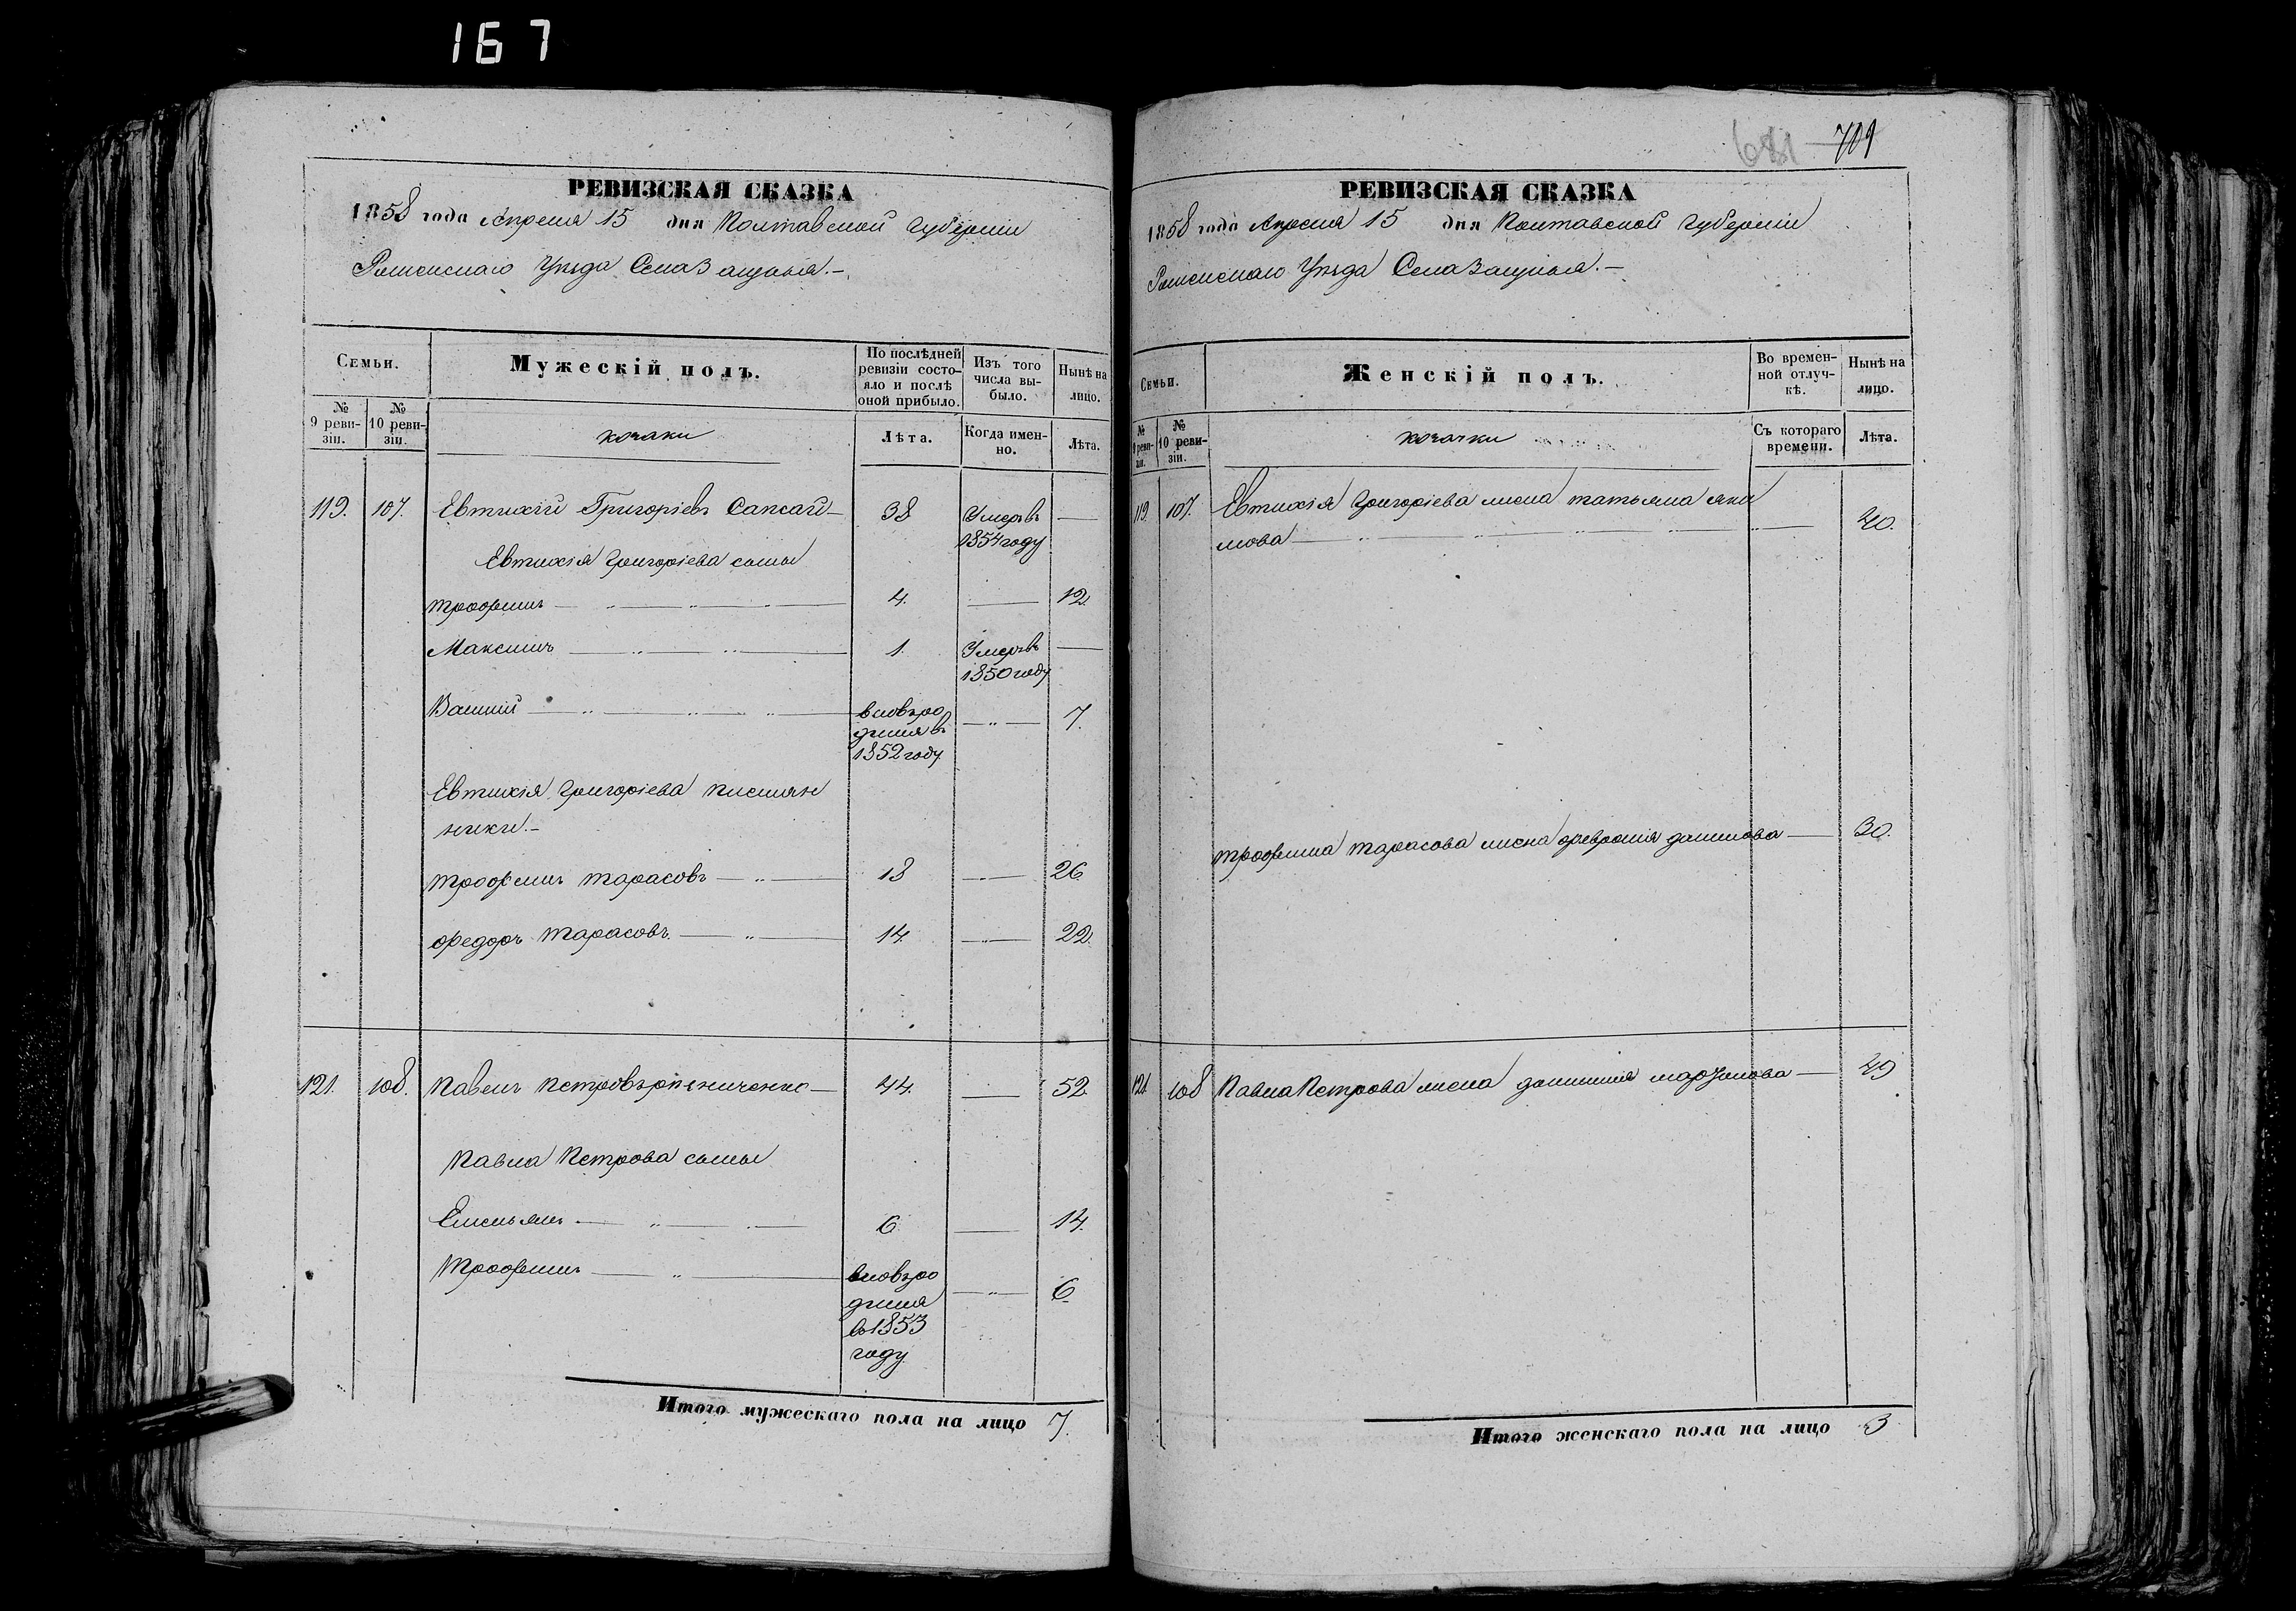 167
РЕВИЗСКАЯ СКАЗКА
1858 года Апреля 15 дня Полтавской Губерніи
Роменскаго Уѣзда Села
Семьи.
Мужескій полъ.
По послѣдней ревизіи состояло и послѣ оной прибыло.
Изъ того числа выбыло.
Нынѣ на лицо.
№ 9 ревизіи.
№ 10 ревизіи.
козаки
Лѣта.
Когда именно.
Лѣта.
119. 107. Евтихій Григоріевъ Сапсай — 38 Умеръ въ —
1854 году
Евтихія Григоріева сыны
Трофимъ — 4. — 12.
Максимъ — 1. Умеръ въ —
1850 году
Василій — вновь ро — 7.
дился въ
1852 году
Евтихія Григоріева племян
ники.—
Трофимъ Тарасовъ — 18 — 26.
Федоръ Тарасовъ. — 14. — 22.
121. 108. Павелъ Петровъ — 44. — 52.
Павла Петрова сыны
Емельянъ — 6 — 14.
Трофимъ — вновь ро — 6.
дился
въ 1853
году
Итого мужескаго пола на лицо 7.
681 701
РЕВИЗСКАЯ СКАЗКА
1858 года Апреля 15 дня Полтавской Губерніи
Роменскаго Уѣзда Села
Семьи.
Женскій полъ.
Во временной отлучкѣ.
Нынѣ на лицо.
№ 9 ревизіи.
№ 10 ревизіи.
козачки
Съ котораго времени.
Лѣта.
119. 107. Евтихія Григоріева жена Татьяна Яки
мова — 40.
Трофима Тарасова жена Феврония Данилова — 30.
121. 108 Павла Петрова жена — 49
Итого женскаго пола на лицо 3